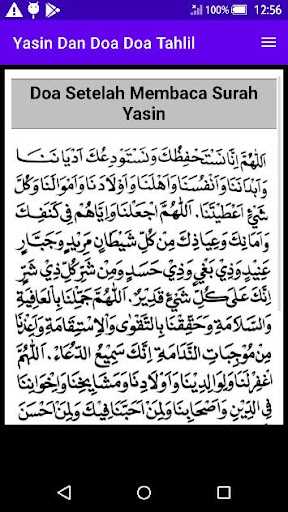 100% 12:56
Yasin Dan Doa Doa Tahlil
Doa Setelah Membaca Surah
Yasin
اَللّٰهُمَّ اِنَّا نَسْتَحْفِظُكَ وَنَسْتَوْدِعُكَ اَدْيَانَنَا
وَاَبْدَانَنَا وَاَنْفُسَنَا وَاَهْلَنَا وَاَوْلَادَنَا وَاَمْوَالَنَا وَكُلَّ
شَيْءٍ اَعْطَيْتَنَا. اَللّٰهُمَّ اجْعَلْنَا وَاِيَّاهُمْ فِيْ كَنَفِكَ
وَاَمَانِكَ وَعِيَاذِكَ مِنْ كُلِّ شَيْطَانٍ مَرِيْدٍ وَجَبَّارٍ
عَنِيْدٍ وَذِيْ بَغْيٍ وَذِيْ حَسَدٍ وَمِنْ شَرِّ كُلِّ ذِيْ شَرٍّ
اِنَّكَ عَلٰى كُلِّ شَيْءٍ قَدِيْرٌ. اَللّٰهُمَّ جَمِّلْنَا بِالْعَافِيَةِ
وَالسَّلَامَةِ وَحَقِّقْنَا بِالتَّقْوٰى وَالْاِسْتِقَامَةِ وَاَعِذْنَا
مِنْ مُوْجِبَاتِ النَّدَامَةِ اِنَّكَ سَمِيْعُ الدُّعَاءِ. اَللّٰهُمَّ
اغْفِرْلَنَا وَلِوَالِدِيْنَا وَاَوْلَادِنَا وَمَشَايِخِنَا وَاِخْوَانِنَا
فِي الدِّيْنِ وَاَصْحَابِنَا وَلِمَنْ اَحَبَّنَا فِيْكَ وَلِمَنْ اَحْسَنَ